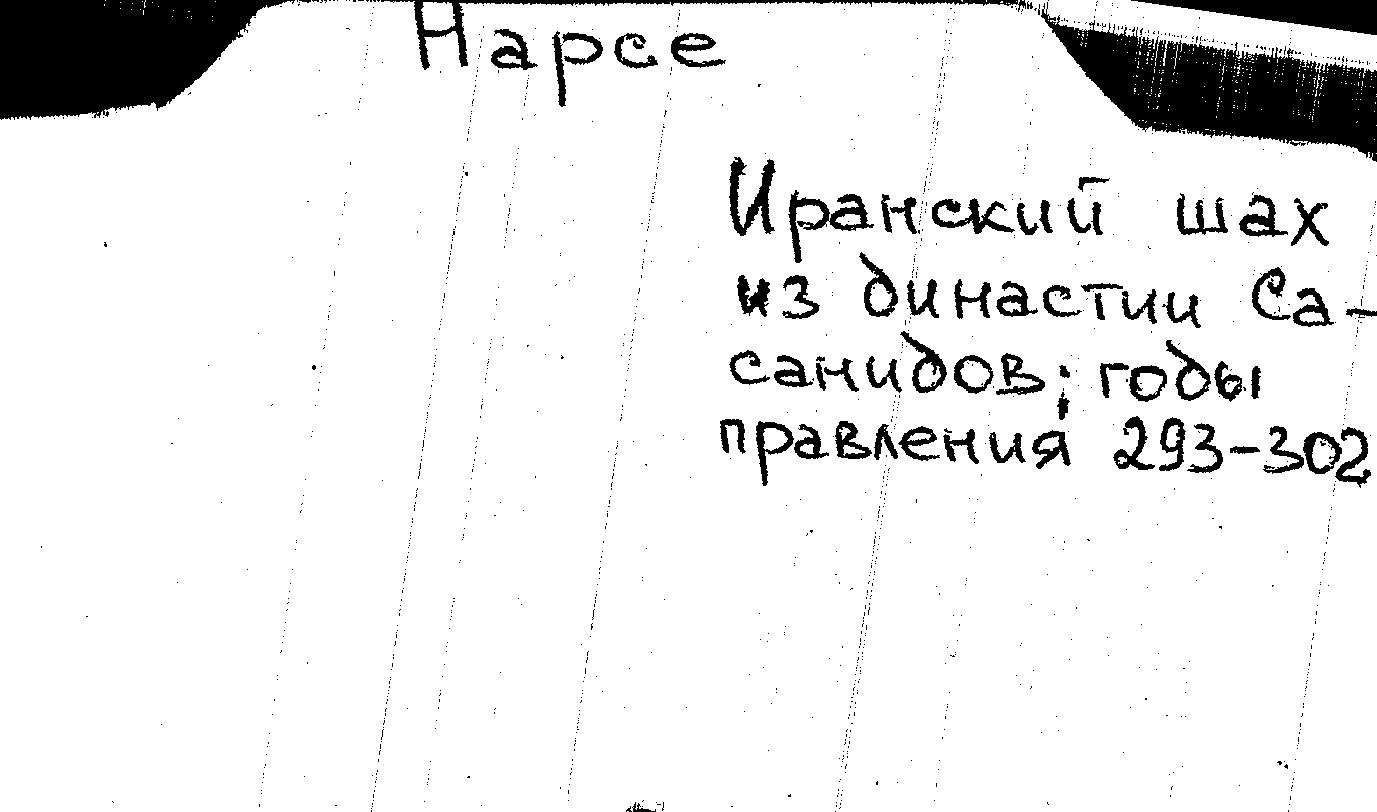 Нарсе
Иранский шах
из династии Са-
санидов; годы
правления 293-302